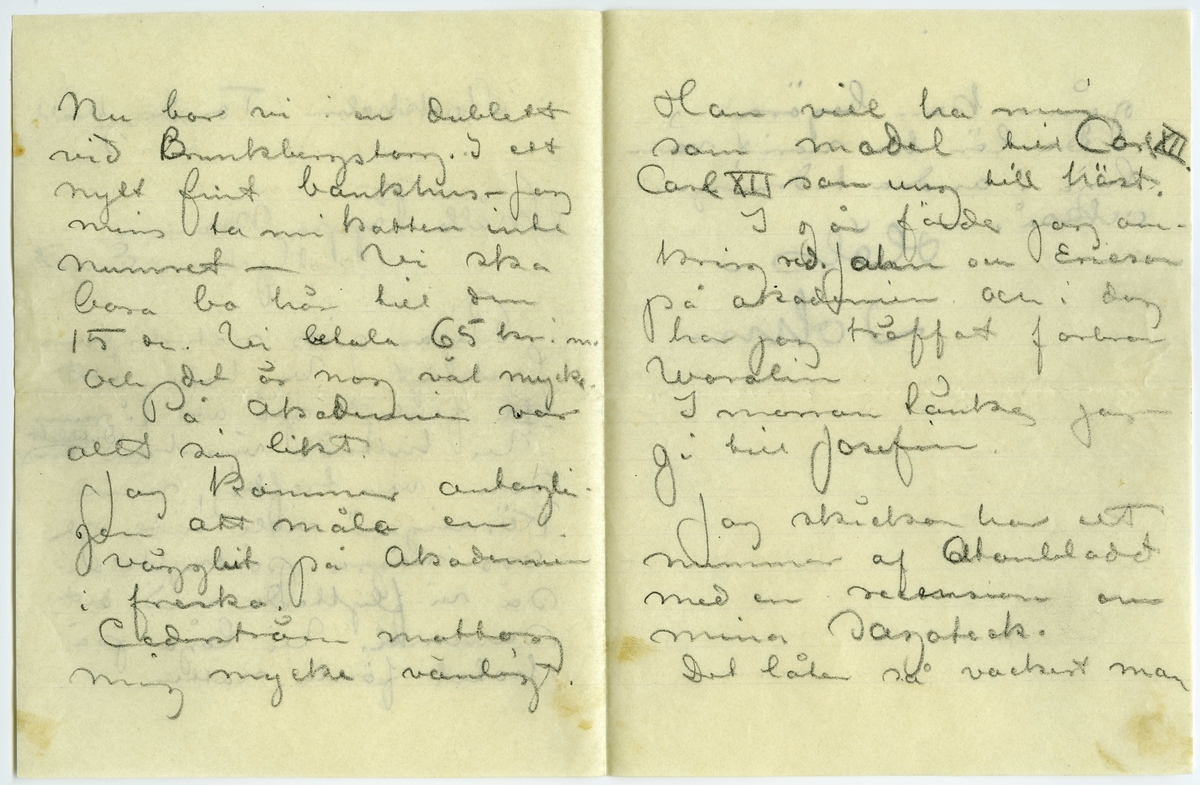 Nu bor vi i en dublett
vid Brunkbergstorg. I ett
nytt fint bankhus – Jag
mins ta mi katten inte
numret – Vi ska
bara bo här till den
15 de. Vi betala 65 kr. i m.
och det är nog väl mycke.
På Akademien var
allt sig likt.
Jag kommer antagli-
gen att måla en
väggbit på Akademien
i freska.
Cederström mottog
mig mycke vänligt.
Han vill ha mig
som model till Carl XII.
Carl XII som ung till häst.
I går förde jag om-
kring
på akademien och i dag
har jag träffat farbror
Woralin
I morran tänker jag
gi till Josefin.
Jag skickar har ett
nummer af Aftonbladet
med en recension om
mina Sagoteck.
Det låter så vackert man